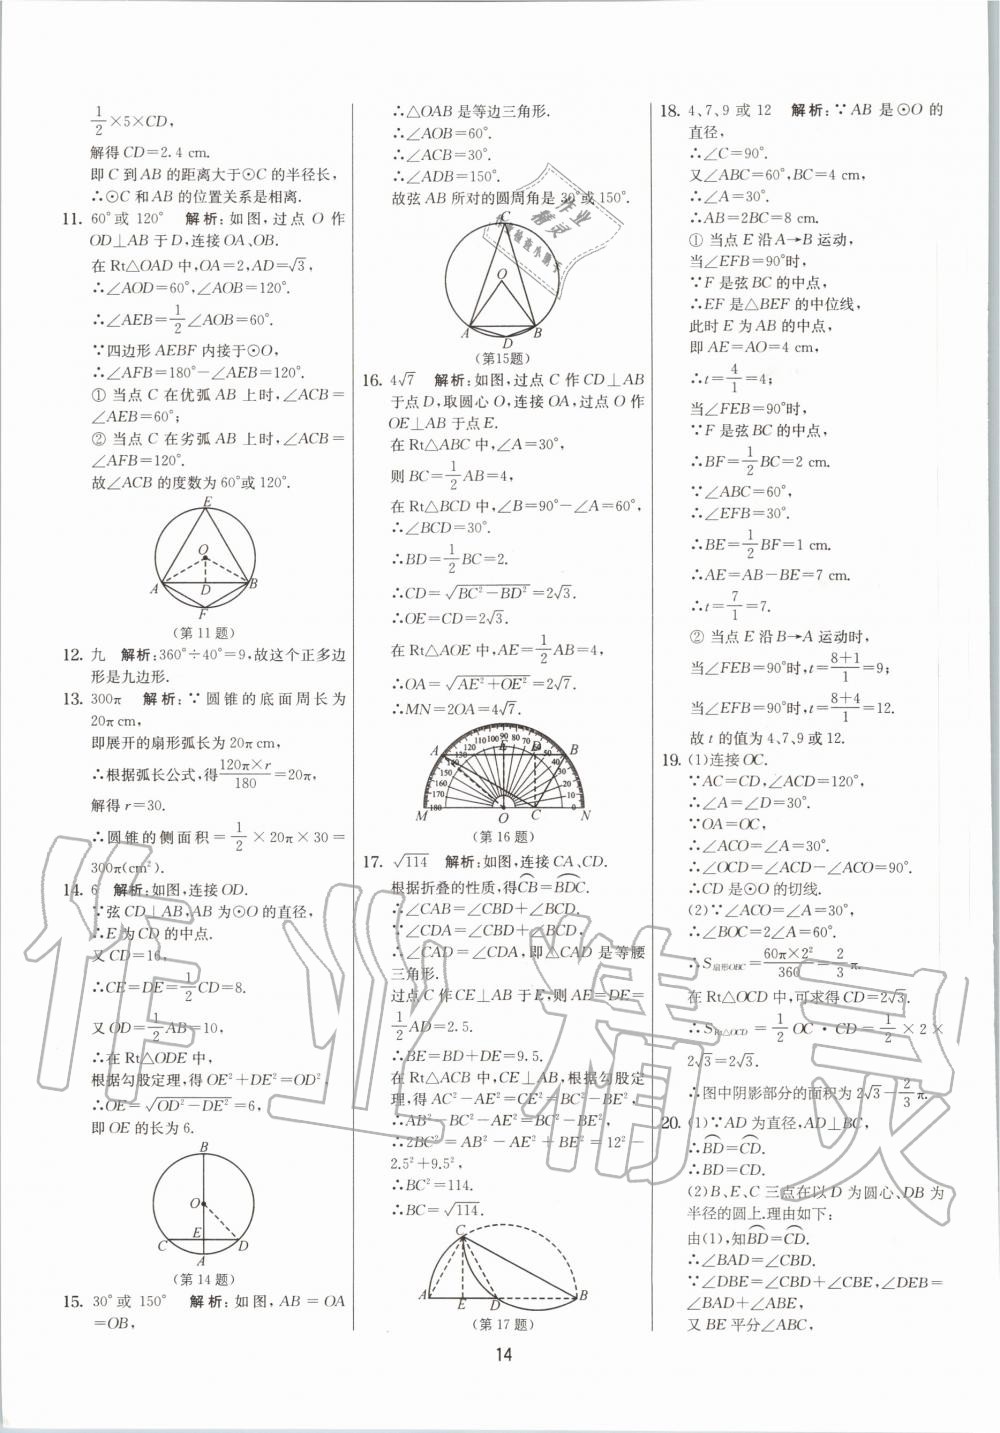 1/2×5×CD,
解得CD=2.4 cm.
即 C 到 AB 的距离大于⊙C 的半径长,
∴⊙C 和 AB 的位置关系是相离.
11. 60°或 120° 解析:如图,过点 O 作
OD⊥AB 于 D,连接 OA、OB.
在 Rt△OAD 中,OA=2,AD=√3,
∴∠AOD=60°,∠AOB=120°.
∴∠AEB=1/2∠AOB=60°.
∵四边形 AEBF 内接于⊙O,
∴∠AFB=180°-∠AEB=120°.
① 当点 C 在优弧 AB 上时,∠ACB=
∠AEB=60°;
② 当点 C 在劣弧 AB 上时,∠ACB=
∠AFB=120°.
故∠ACB 的度数为 60°或 120°.
E
O
A D B
F
(第 11 题)
12. 九 解析:360°÷40°=9,故这个正多边
形是九边形.
13. 300π 解析:∵圆锥的底面周长为
20π cm,
即展开的扇形弧长为 20π cm,
∴根据弧长公式,得120π×r/180=20π,
解得 r=30.
∴圆锥的侧面积=1/2×20π×30=
300π(cm²).
14. 6 解析:如图,连接 OD.
∵弦 CD⊥AB,AB 为⊙O 的直径,
∴E 为 CD 的中点.
又 CD=16,
∴CE=DE=1/2CD=8.
又 OD=1/2AB=10,
∴在 Rt△ODE 中,
根据勾股定理,得 OE²+DE²=OD²,
∴OE=√(OD²-DE²)=6,
即 OE 的长为 6.
B
O
E
C D
A
(第 14 题)
15. 30°或 150° 解析:如图,AB=OA
=OB,
∴△OAB 是等边三角形.
∴∠AOB=60°.
∴∠ACB=30°.
∴∠ADB=150°.
故弦 AB 所对的圆周角是 30°或 150°.
C
O
A B
D
(第15题)
16. 4√7 解析:如图,过点 C 作 CD⊥AB
于点 D,取圆心 O,连接 OA,过点 O 作
OE⊥AB 于点 E.
在 Rt△ABC 中,∠A=30°,
则 BC=1/2AB=4,
在 Rt△BCD 中,∠B=90°-∠A=60°,
∴∠BCD=30°.
∴BD=1/2BC=2.
∴CD=√(BC²-BD²)=2√3.
∴OE=CD=2√3.
在 Rt△AOE 中,AE=1/2AB=4,
∴OA=√(AE²+OE²)=2√7.
∴MN=2OA=4√7.
A E D B
M O C N
(第 16 题)
17. √114 解析:如图,连接 CA、CD.
根据折叠的性质,得C͡B=B͡D͡C.
∴∠CAB=∠CBD+∠BCD.
∵∠CDA=∠CBD+∠BCD,
∴∠CAD=∠CDA,即△CAD 是等腰
三角形.
过点 C 作 CE⊥AB 于 E,则 AE=DE=
1/2AD=2.5.
∴BE=BD+DE=9.5.
在 Rt△ACB 中,CE⊥AB,根据勾股定
理,得 AC²-AE²=CE²=BC²-BE²,
∴AB²-BC²-AE²=BC²-BE².
∴2BC²=AB²-AE²+BE²=12²-
2.5²+9.5²,
∴BC²=114.
∴BC=√114.
C
A E D B
(第 17 题)
18. 4、7、9 或 12 解析:∵AB 是⊙O 的
直径,
∴∠C=90°.
又∠ABC=60°,BC=4 cm,
∴∠A=30°.
∴AB=2BC=8 cm.
① 当点 E 沿 A→B 运动,
当∠EFB=90°时,
∵F 是弦 BC 的中点,
∴EF 是△BEF 的中位线,
此时 E 为 AB 的中点,
即 AE=AO=4 cm,
∴t=4/1=4;
当∠FEB=90°时,
∵F 是弦 BC 的中点,
∴BF=1/2BC=2 cm.
∵∠ABC=60°,
∴∠EFB=30°.
∴BE=1/2BF=1 cm.
∴AE=AB-BE=7 cm.
∴t=7/1=7.
② 当点 E 沿 B→A 运动时,
当∠FEB=90°时,t=8+1/1=9;
当∠EFB=90°时,t=8+4/1=12.
故 t 的值为 4、7、9 或 12.
19. (1)连接 OC.
∵AC=CD,∠ACD=120°,
∴∠A=∠D=30°.
∵OA=OC,
∴∠ACO=∠A=30°.
∴∠OCD=∠ACD-∠ACO=90°.
∴CD 是⊙O 的切线.
(2)∵∠ACO=∠A=30°,
∴∠BOC=2∠A=60°.
∴S扇形OBC=60π×2²/360=2/3π.
在 Rt△OCD 中,可求得 CD=2√3.
∴SRt△OCD=1/2OC·CD=1/2×2×
2√3=2√3.
∴图中阴影部分的面积为 2√3-2/3π.
20. (1)∵AD 为直径,AD⊥BC,
∴B͡D=C͡D.
∴BD=CD.
(2)B、E、C 三点在以 D 为圆心、DB 为
半径的圆上.理由如下:
由(1),知B͡D=C͡D.
∴∠BAD=∠CBD.
∵∠DBE=∠CBD+∠CBE,∠DEB=
∠BAD+∠ABE,
又 BE 平分∠ABC,
14
作业精灵